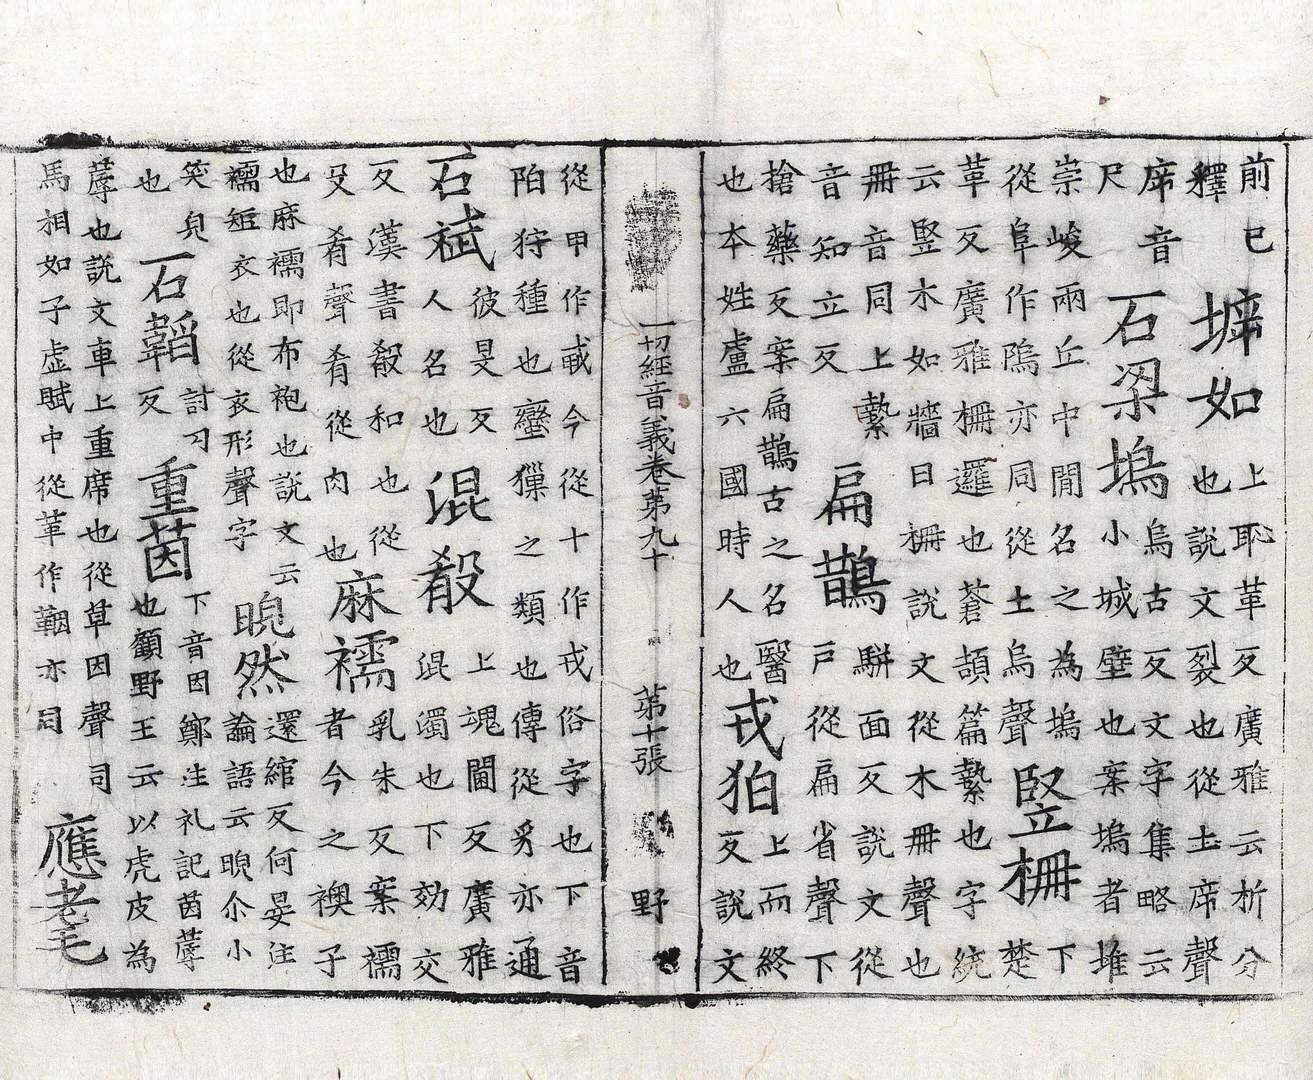 前已釋 㙤如 上耻革反廣雅云析分也說文裂也從土㡿聲
㡿音尺 石梁塢 烏古反文字集略云小城壁也案塢者堆
崇峻兩丘中閒名之為塢從阜作隖亦同從土烏聲 竪柵 下楚
革反廣雅柵邏也蒼頡篇縶也字統云竪木如牆曰柵說文從木冊聲也
冊音同上縶音知立反 扁鵲 騈面反說文從戶從扁省聲下
搶藥反案扁鵲古之名醫也夲姓盧六國時人也 戎狛 上而終反說文
一切經音義卷第九十 第十張 野
從甲作𢦦今從十作戎俗字也下音陌狩種也蠻獵之類也傳從豸亦通
石斌 彼旻反人名也 混殽 上魂閫反廣雅混濁也下効交
反漢書殽和也從殳肴聲肴從肉也 麻襦 乳朱反案襦者今之襖子
也麻襦即布袍也說文云襦短衣也從衣形聲字 睨然 還綰反何晏注論語云睨尒小
笑皃也 石韜 討刀反 重茵 下音因鄭注礼記茵蓐也顧野王云以虎皮為
蓐也說文車上重席也從草因聲司馬相如子虛賦中從革作鞇亦同 應耄